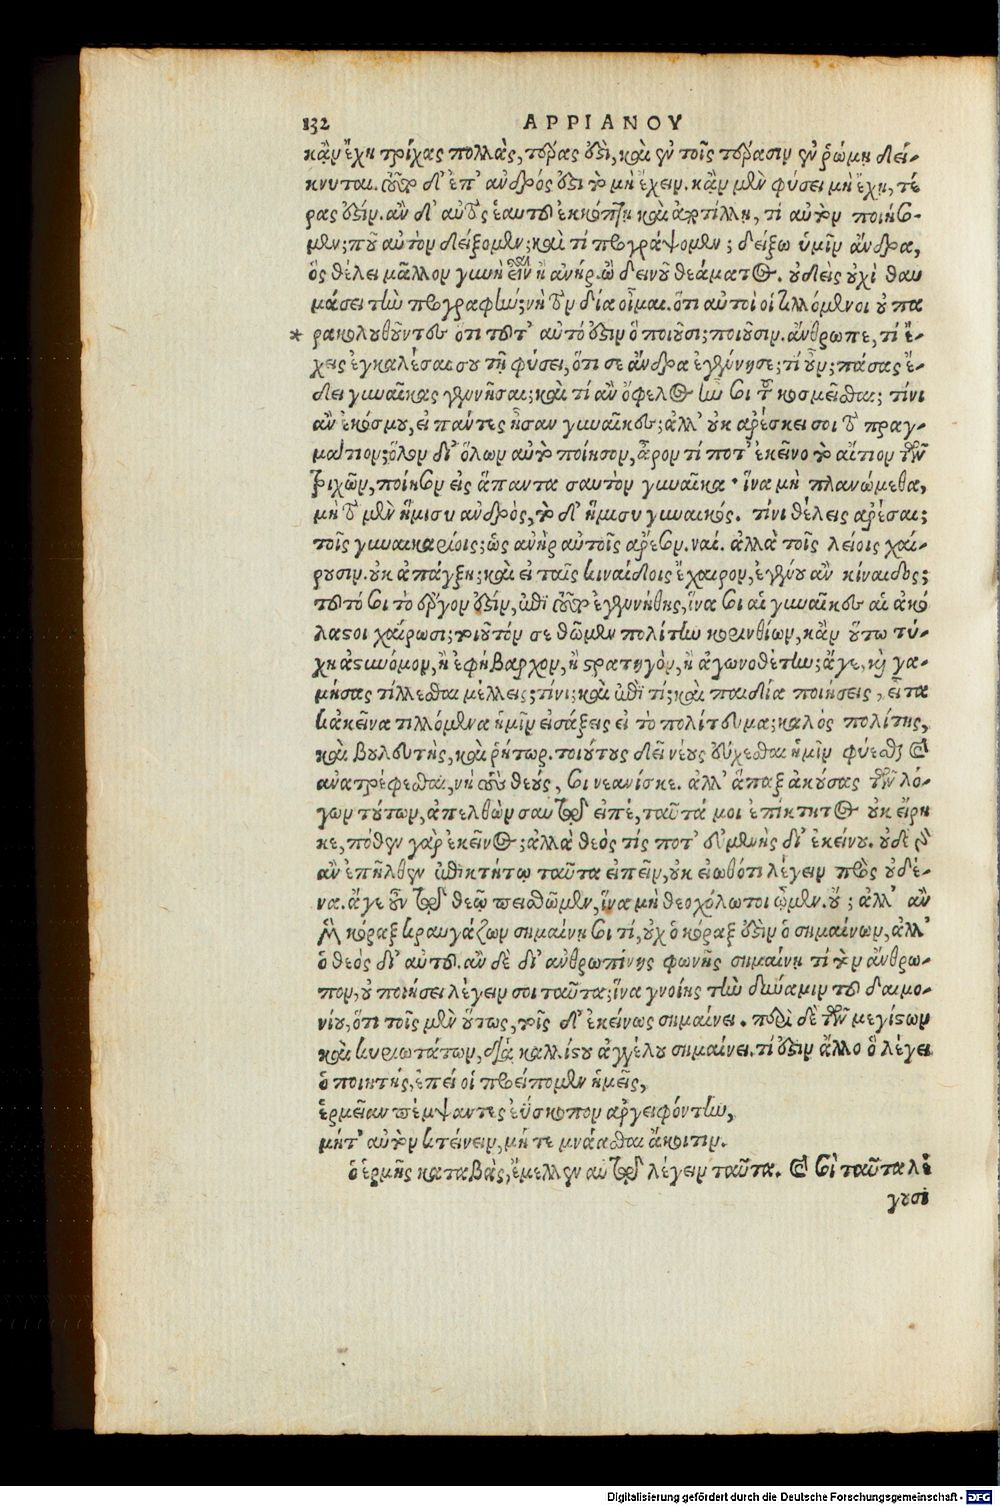 132 ΑΡΡΙΑΝΟΥ
κἂν ἔχῃ τρίχας πολλὰς, τέρας ἐστὶ, καὶ ἐν τοῖς τέρασιν ἐν ῥώμῃ δεί-
κνυται. δ' ἐπ' ἀνδρός ἐστι τὸ μὴ ἔχειν. κἂν μὲν φύσει μὴ ἔχῃ, τέ
ρας ἐστίν. ἂν δ' αὐτὸς ἑαυτοῦ ἐκκόπτῃ καὶ ἀποτίλλῃ, τί αὐτὸν ποιήσο-
μεν; ποῦ αὐτὸν δείξομεν; καὶ τί προγράψομεν; δείξω ὑμῖν ἄνδρα,
ὃς θέλει μᾶλλον γυνὴ εἶναι ἢ ἀνήρ. ὢ δεινοῦ θεάματος. οὐδεὶς οὐχὶ θαυ
μάσει τὴν προγραφήν; νὴ τὸν δία οἶμαι. ὅτι αὐτοὶ οἱ τιλλόμενοι οὐ πα
* ρακολουθοῦντες ὅτι τοῦτ' αὐτό ἐστιν ὃ ποιοῦσι; ποιοῦσιν. ἄνθρωπε, τί ἔ-
χεις ἐγκαλέσαι σου τῇ φύσει, ὅτι σε ἄνδρα ἐγέννησε; τί οὖν; πάσας ἔ-
δει γυναῖκας γεννῆσαι; καὶ τί ἂν ὄφελος ἦν σοι τοῦ κοσμεῖσθαι; τίνι
ἂν ἐκόσμου, εἰ πάντες ἦσαν γυναῖκες; ἀλλ' οὐκ ἀρέσκει σοι τὸ πραγ-
μάτιον; ὅλον δι' ὅλων αὐτὸ ποίησον, ἆρον τί ποτ' ἐκεῖνο τὸ αἴτιον τῶν
τριχῶν, ποίησον εἰς ἅπαντα σαυτὸν γυναῖκα· ἵνα μὴ πλανώμεθα,
μὴ τὸ μὲν ἥμισυ ἀνδρὸς, τὸ δ' ἥμισυ γυναικός. τίνι θέλεις ἀρέσαι;
τοῖς γυναικαρίοις; ὡς ἀνὴρ αὐτοῖς ἄρεσον. ναί. ἀλλὰ τοῖς λείοις χαί-
ρουσιν. οὐκ ἀπάγξῃ; καὶ εἰ ταῖς κιναίδοις ἔχαιρον, ἐγένου ἂν κίναιδος;
τοῦτό σοι τὸ ἔργον ἐστίν, ἐπὶ ἐγεννήθης, ἵνα σοι αἱ γυναῖκες αἱ ἀκό
λαστοι χαίρωσι; τοιοῦτόν σε θῶμεν πολίτην κορινθίων, κἂν οὕτω τύ-
χῃ ἀστυνόμον, ἢ ἐφήβαρχον, ἢ στρατηγὸν, ἢ ἀγωνοθέτην; ἄγε, καὶ γα-
μήσας τίλλεσθαι μέλλεις; τίνι; καὶ ἐπὶ τί; καὶ παιδία ποιήσεις, εἶτα
κἀκεῖνα τιλλόμενα ἡμῖν εἰσάξεις εἰ τὸ πολίτευμα; καλὸς πολίτης,
καὶ βουλευτὴς, καὶ ῥήτωρ. τοιούτους δεῖ νέους εὔχεσθαι ἡμῖν φύεσθαι καὶ
ἀνατρέφεσθαι, νὴ τοὺς θεοὺς, σοι νεανίσκε. ἀλλ' ἅπαξ ἀκούσας τῶν λό-
γων τούτων, ἀπελθὼν σαυτῷ εἰπέ, ταῦτά μοι ἐπίκτητος οὐκ εἴρη
κε, πόθεν γὰρ ἐκεῖνος; ἀλλὰ θεὸς τίς ποτ' εὐμενὴς δι' ἐκείνου. οὐδὲ
ἂν ἐπῆλθεν ἐπικτήτῳ ταῦτα εἰπεῖν, οὐκ εἰωθότι λέγειν πρὸς οὐδέ-
να. ἄγε οὖν τῷ θεῷ πεισθῶμεν, ἵνα μὴ θεοχόλωτοι ὦμεν. οὔ; ἀλλ' ἂν
μὲν κόραξ κραυγάζων σημαίνῃ σοι τί, οὐχ ὁ κόραξ ἐστὶν ὁ σημαίνων, ἀλλ'
ὁ θεὸς δι' αὐτοῦ. ἂν δὲ δι' ἀνθρωπίνης φωνῆς σημαίνῃ τί τὸν ἄνθρω-
πον, οὐ ποιήσει λέγειν σοι ταῦτα; ἵνα γνοίης τὴν δύναμιν τοῦ δαιμο-
νίου, ὅτι τοῖς μὲν οὕτως, τοῖς δ' ἐκείνως σημαίνει. περὶ δὲ τῶν μεγίστων
καὶ κυριωτάτων, διὰ καλλίστου ἀγγέλου σημαίνει. τί ἐστιν ἄλλο ὃ λέγει
ὁ ποιητής, ἐπεί οἱ προείπομεν ἡμεῖς,
ἑρμείαν πέμψαντες ἐΰσκοπον ἀργειφόντην,
μήτ' αὐτὸν κτείνειν, μήτε μνάασθαι ἄκοιτιν.
ὁ ἑρμῆς καταβὰς, ἔμελλεν αὐτῷ λέγειν ταῦτα. καὶ σοὶ ταῦτα λέ
γουσι
Digitalisierung gefördert durch die Deutsche Forschungsgemeinschaft - DFG